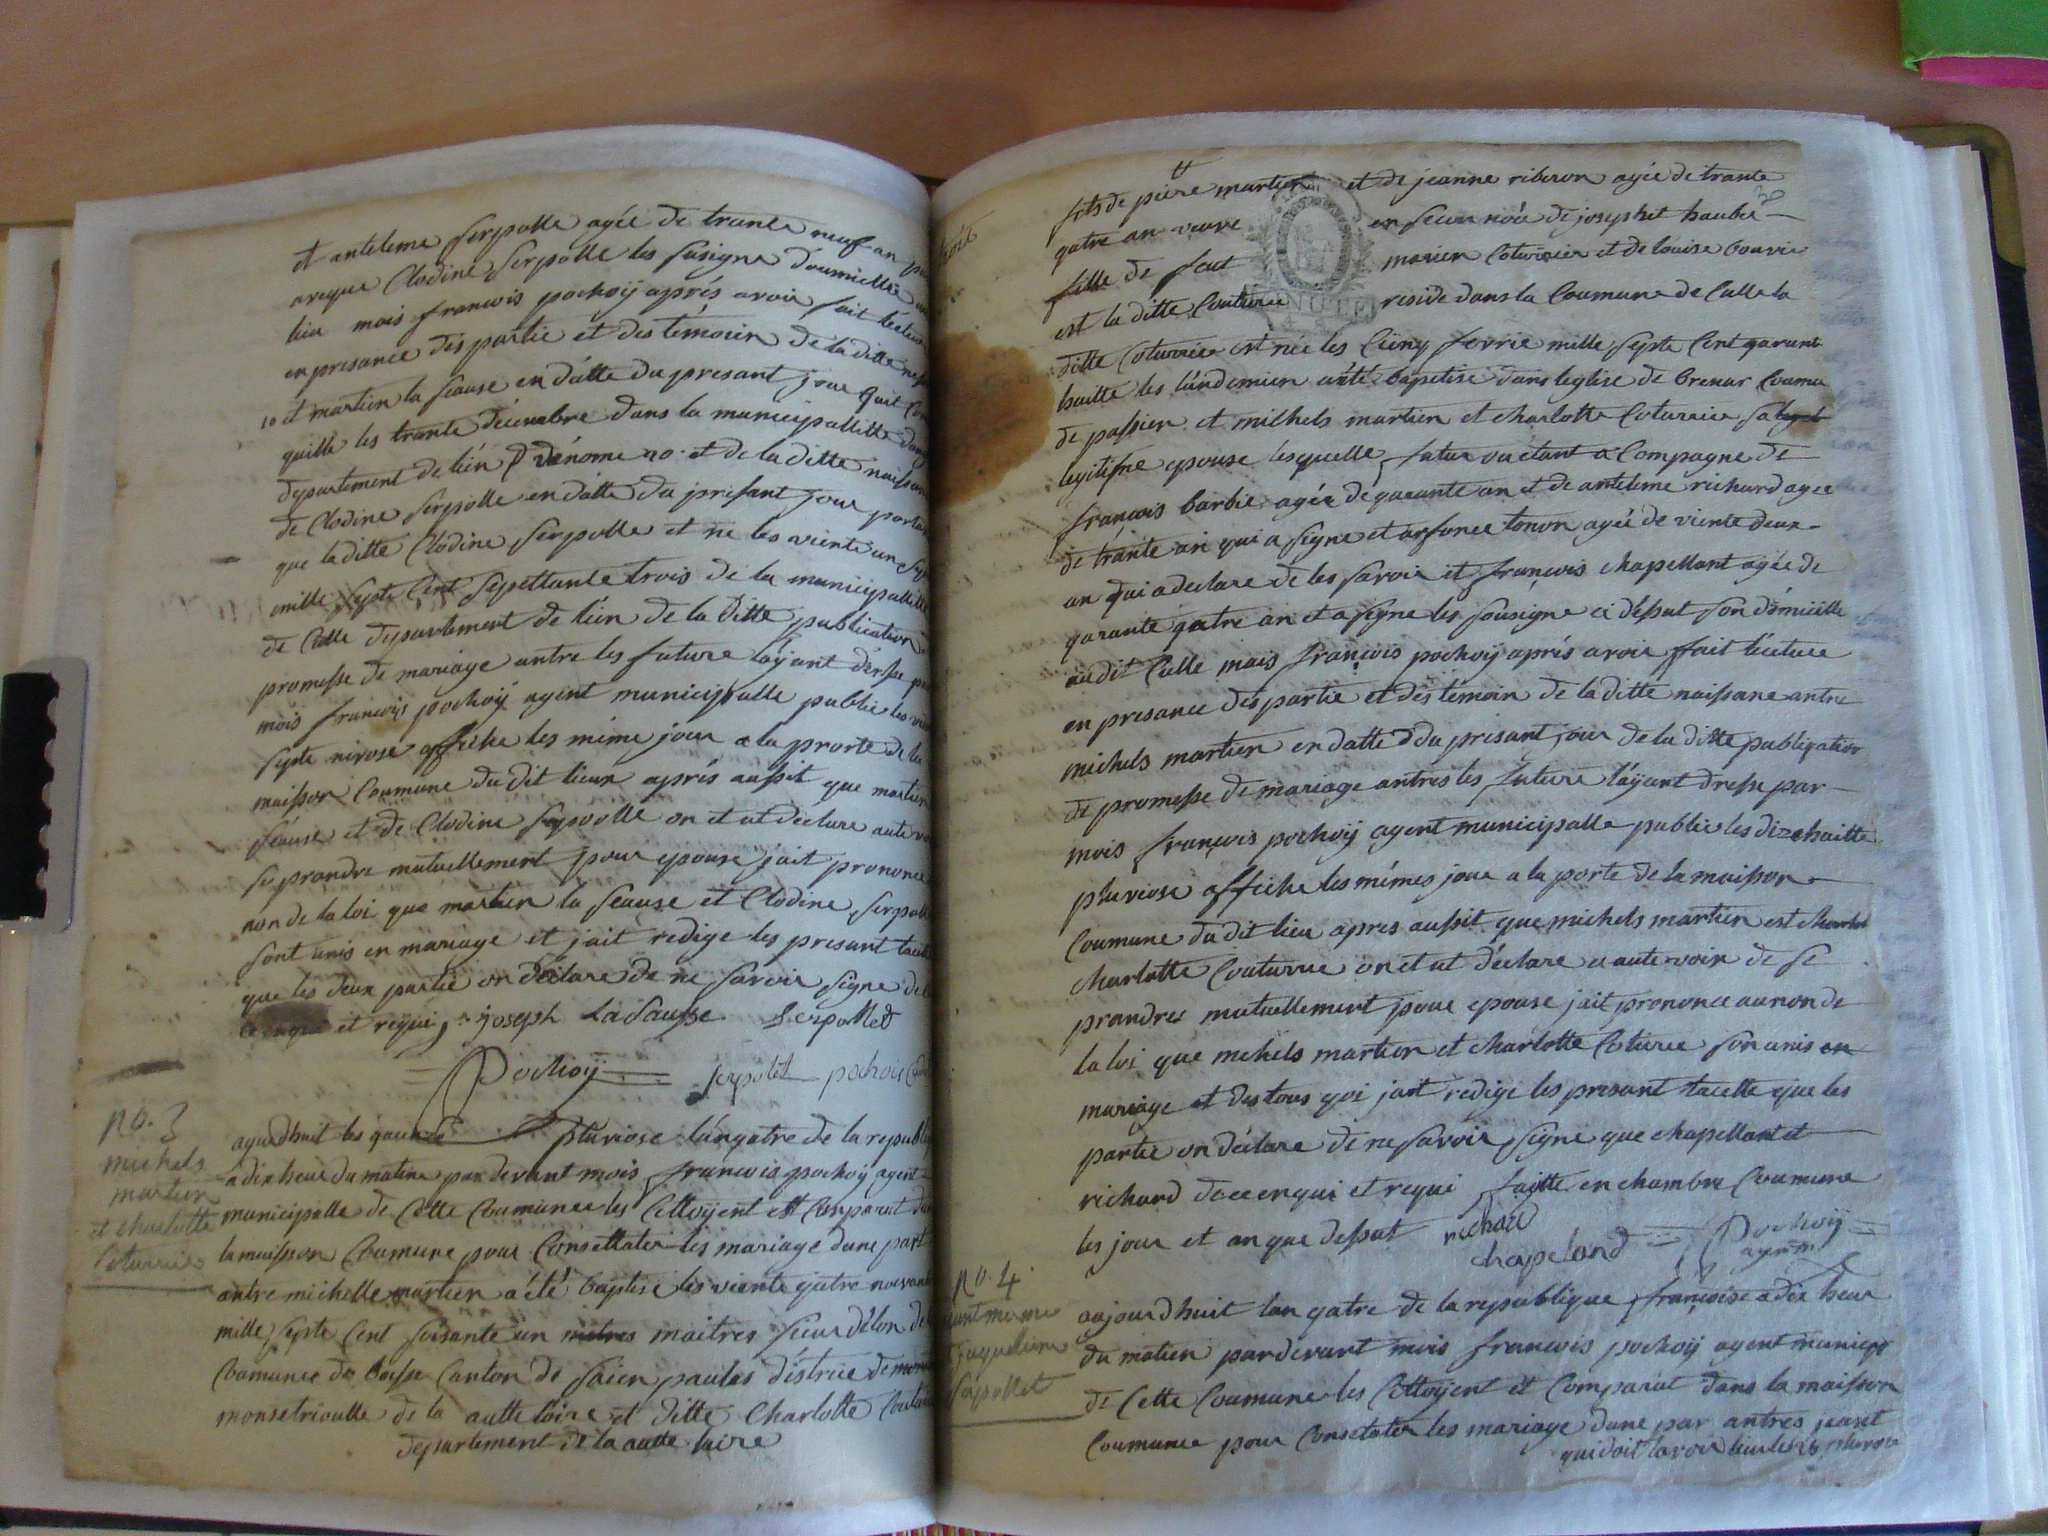 et anteleme serpolle agée de trante neuf an
aveque Clodine Serpolle les susigne doumicille au
lieu mois francois pochoÿ aprés avoir fait lécture
en presance dés partie et des témoin de la ditte
10 et martien la seause en dátte du presant jour quit
quille les trante décembre dans la municipallitte
departement de léin Dénome no. et de la ditte naissan
de Clodine serpolle en dátte du presant jour portan
que la ditte Clodine serpolle et ne les vientte un
mille septe Cent septtante trois de la municipallitte
de Culle departement de léin de la ditte publication
promesse de mariage antre les future laÿant dresse par
mois francois pochoÿ agent municipalle publie les
septe nivose affiche les mime jour a la prorte de la
maisson Coumune du dit lieux aprés aussit que martien
séause et de Clodine serpolle on et ut declare aute
se prandre mutuellement pour epouse jait prononce
non de la loi que martien la seause et Clodine serpolle
sont unis en mariage et jait redige les presant tacte
que les deux partie on déclare de ne savoir signe de
et requi joseph Lasausse Serpollet
Pochoÿ serpolet pochoi
no. 3
michels
martien
et charlotte
Coturrie
ajurdhuit les pluviose lánqatre de la republi
a dix heur du matine par devant mois francois pochoÿ agent
municipalle de Cette Coumunee les Cittoÿent et Comparut dan
la maisson Coumune pour Consettater les mariage dune part
antre michelle martien a été baptise les viente qutre
mille septe Cent soisante un maitres sieur délon de
Coumunee de Basse Canton de saien paulas déstrict de
monsetrioulle de la autte loire et ditte Charlotte
departement de la autte loire
fils de piere martien et de jeanne riberon agée de trante
qatre an veuve en secon noée de josephet baubie
fille de feut morien Coturier et de louise bouvie
est la ditte Couturie reside dans la Coumune de Culle la
ditte Coturrie est née les Cienq fevrie mille septe Cent qarante
huitte les lándemien áété bapetise dans leglise de brenar Coumu
de passien et michels martien et charlotte Coturrie
legitisme epouse lesquelle futur vaétant a Compagne de
francois barbie agée dé quarante an et de anteleme richard agee
de trante an qui a signe et tonon agée de viente deux
an qui a declare de les savoir et francois chapellant agée de
qarante qatre an et a signe les sousigne ci déssut son dómicille
au dit Culle mais francois pochoÿ aprés avoir fait lécture
en presance dés partie et dés témoin de la ditte naissane antre
michels martien en datte du presant jour de la ditte publiqation
de promesse de mariage antres les future láÿant dresse par
mois francois pochoÿ agent municipalle publie les dizehuitte
pluviose affiche les mémes jour a la porte de la maisson
Coumune du dit lieu apres aussit que michels martien est
charlotte Couturrie on et ut déclare a aute voir de se
prandres mutuellement pour epouse jait prononce au non de
la loi que michels martien et charlotte Coturee son unis en
mariage et des tous qoi jait redige les presant tacette que les
partie on déclare de ne savoir signe que chapellant et
richard de ce enqui et requi faitte en chambre Coumune
les jour et an que dessut richard
chapeland Pochoÿ
agent m
no. 4
jaquelienne
serpollet
aujourdhuit lan qatre de la republique francoise a dix heur
du matien pardevant mois francois pochoÿ agent municipe
de Cette Coumune les Cittoÿent et Comparut dans la maisson
Coumunee pour Consetater les mariage dune par antres jeant
qui doit lavoir lieu les 26 pluviose